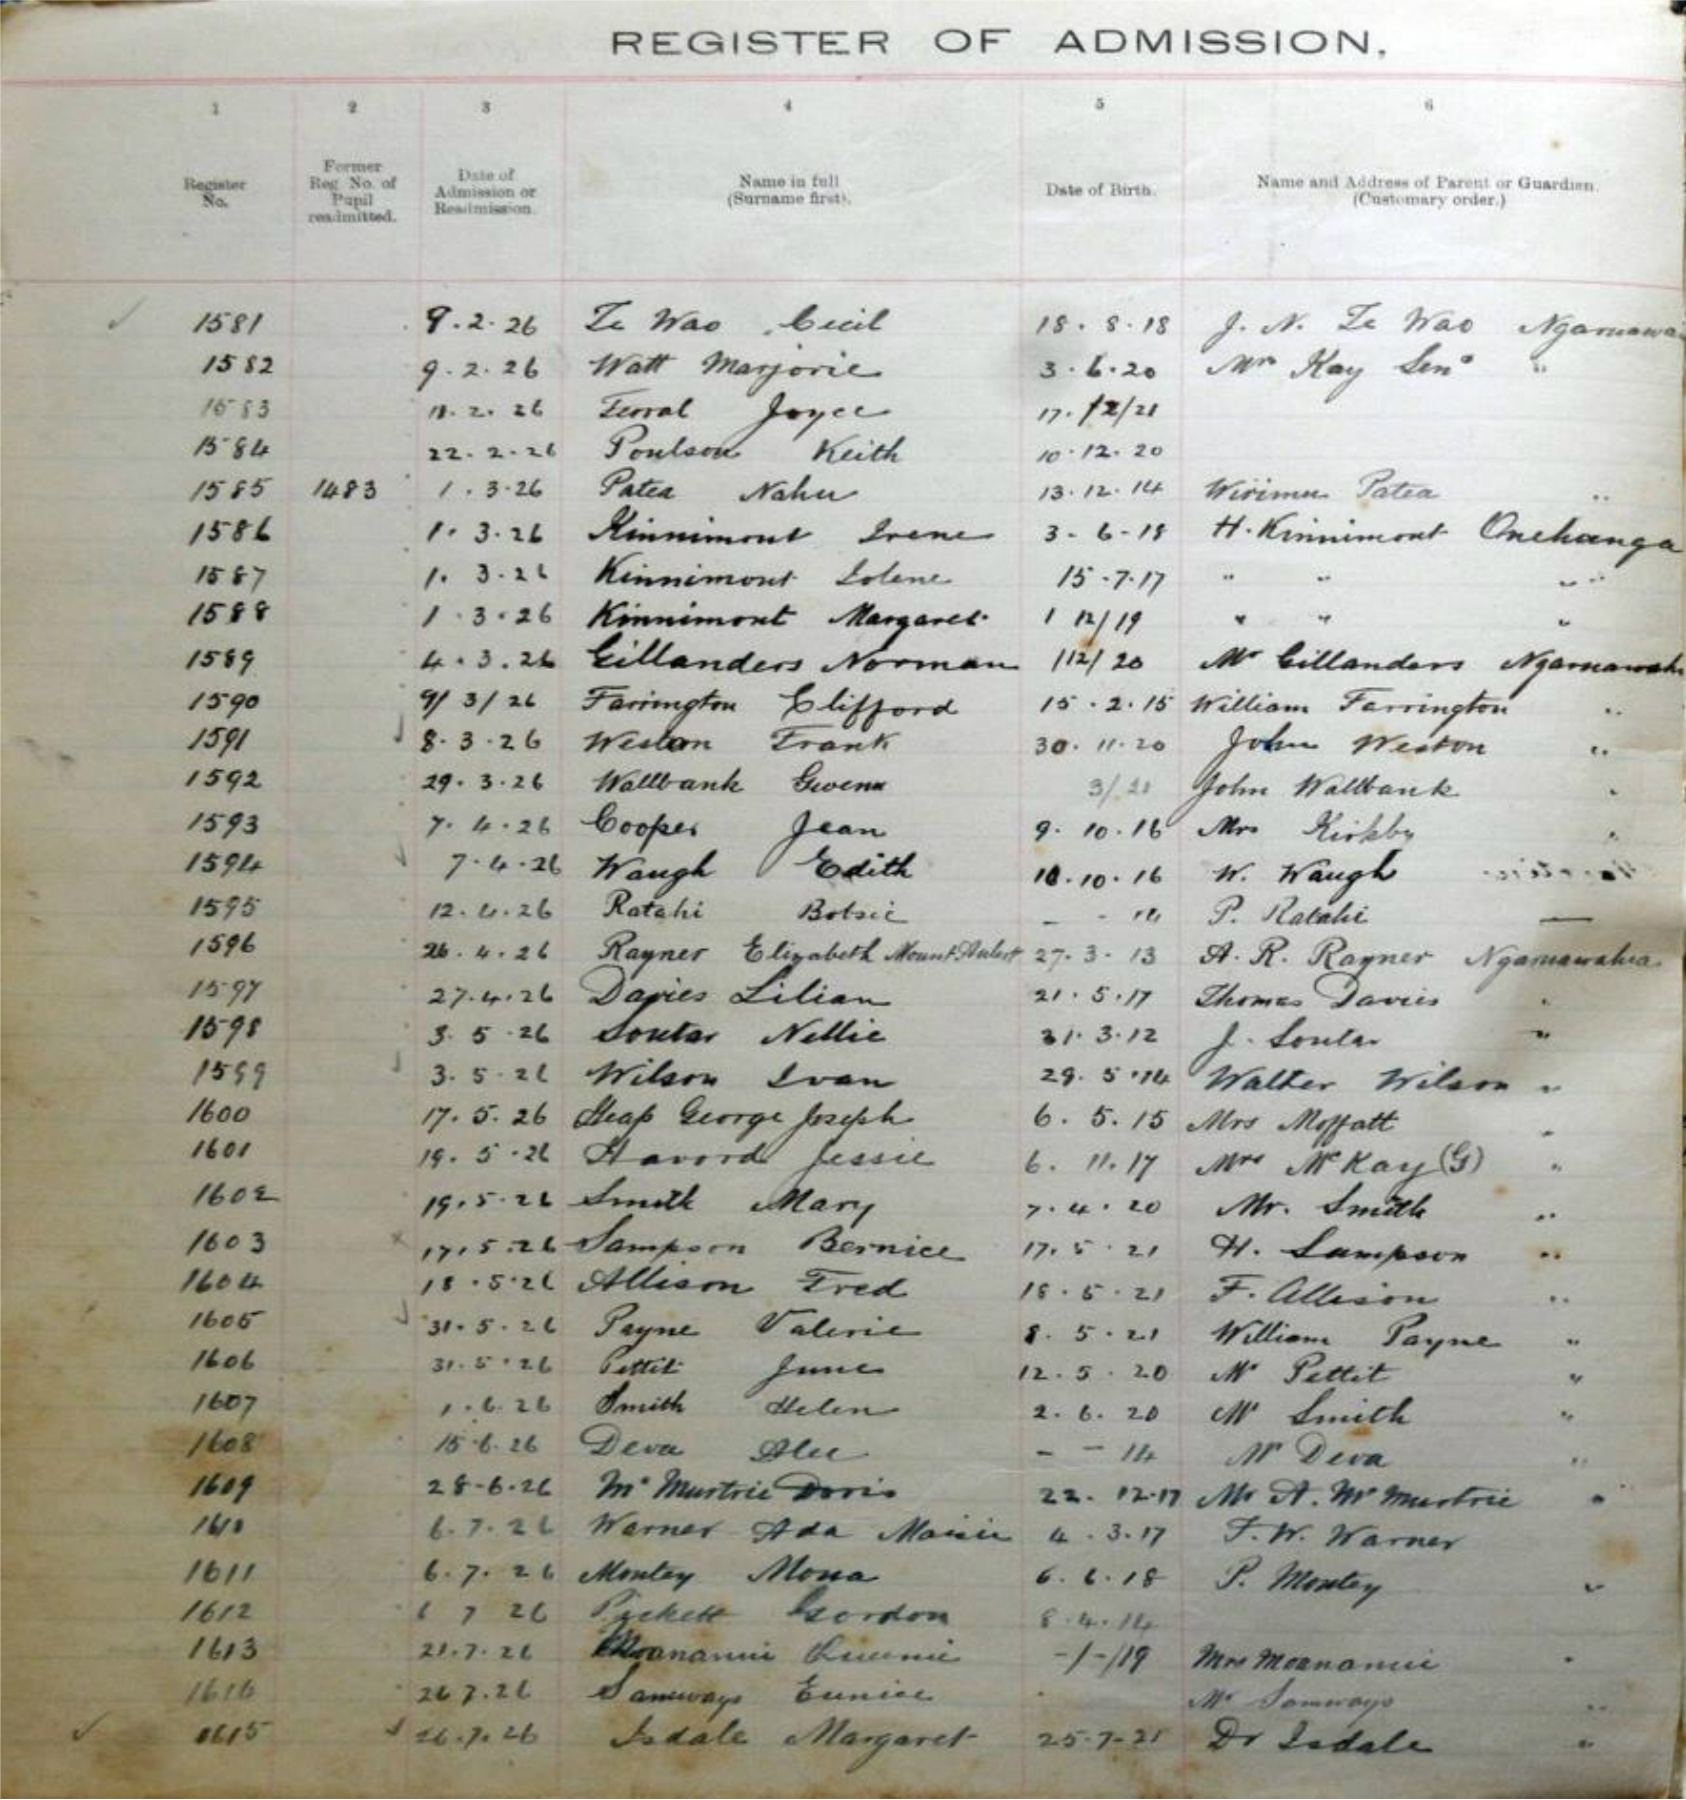 REGISTER OF ADMISSION.
1 2 3 4 5 6
Register No. Former Reg. No. of Pupil readmitted. Date of Admission or Readmission. Name in full (Surname first). Date of Birth. Name and Address of Parent or Guardian. (Customary order.)
1581 9.2.26 Te Wao Cecil 18.8.18 J. N. Te Wao Ngaruawa
1582 9.2.26 Watt Marjorie 3.6.20 Mrs Kay Senr "
1583 18.2.26 Joyce 17.12/21
1584 22.2.26 Poulson Keith 10.12.20
1585 1483 1.3.26 Patea Nahu 13.12.14 Wirimu Patea "
1586 1.3.26 Kinnimont Irene 3-6-18 H. Kinnimont Onehunga
1587 1.3.26 Kinnimont Iolene 15.7.17 " " "
1588 1.3.26 Kinnimont Margaret 1 12/19 " " "
1589 4.3.26 Gillanders Norman 1/12/20 Mr Gillanders Ngaruawah
1590 9/3/26 Farrington Clifford 15.2.15 William Farrington "
1591 8.3.26 Weston Frank 30.11.20 John Weston "
1592 29.3.26 Wallbank Gwenn 3/21 John Wallbank "
1593 7.4.26 Cooper Jean 9.10.16 Mrs Kirkby "
1594 7.4.26 Waugh Edith 10.10.16 W. Waugh
1595 12.4.26 Ratahi Botsie – - 14 P. Ratahi —
1596 26.4.26 Rayner Elizabeth Mount 27.3.13 A. R. Rayner Ngaruawahia
1597 27.4.26 Davies Lilian 21.5.17 Thomas Davies "
1598 3.5.26 Soutar Nellie 31.3.12 J. Soutar "
1599 3.5.26 Wilson Ivan 29.5.14 Walter Wilson "
1600 17.5.26 Heap George Joseph 6.5.15 Mrs Moffatt "
1601 19.5.26 Havord Jessie 6.11.17 Mrs McKay (G) "
1602 19.5.26 Smith Mary 7.4.20 Mr. Smith "
1603 17.5.26 Sampson Bernice 17.5.21 H. Sampson "
1604 18.5.26 Allison Fred 18.5.21 F. Allison "
1605 31.5.26 Payne Valerie 8.5.21 William Payne "
1606 31.5.26 Pettit June 12.5.20 Mr Pettit "
1607 1.6.26 Smith Helen 2.6.20 Mr Smith "
1608 15.6.26 Deva Alec – – 14 Mr Deva "
1609 28-6-26 McMurtrie Doris 22.12.17 Mr A. McMurtrie "
1610 6.7.26 Warner Ada Maisie 4.3.17 F. W. Warner
1611 6.7.26 Montey Mona 6.6.18 P. Montey "
1612 6 7 26 Gordon 8.4.14
1613 21.7.26 Moananui Queenie -/-/19 Mrs Moananui "
1614 26 7.26 Samways Eunice Mr Samways "
1615 26.7.26 Isdale Margaret 25-7-21 Dr Isdale "